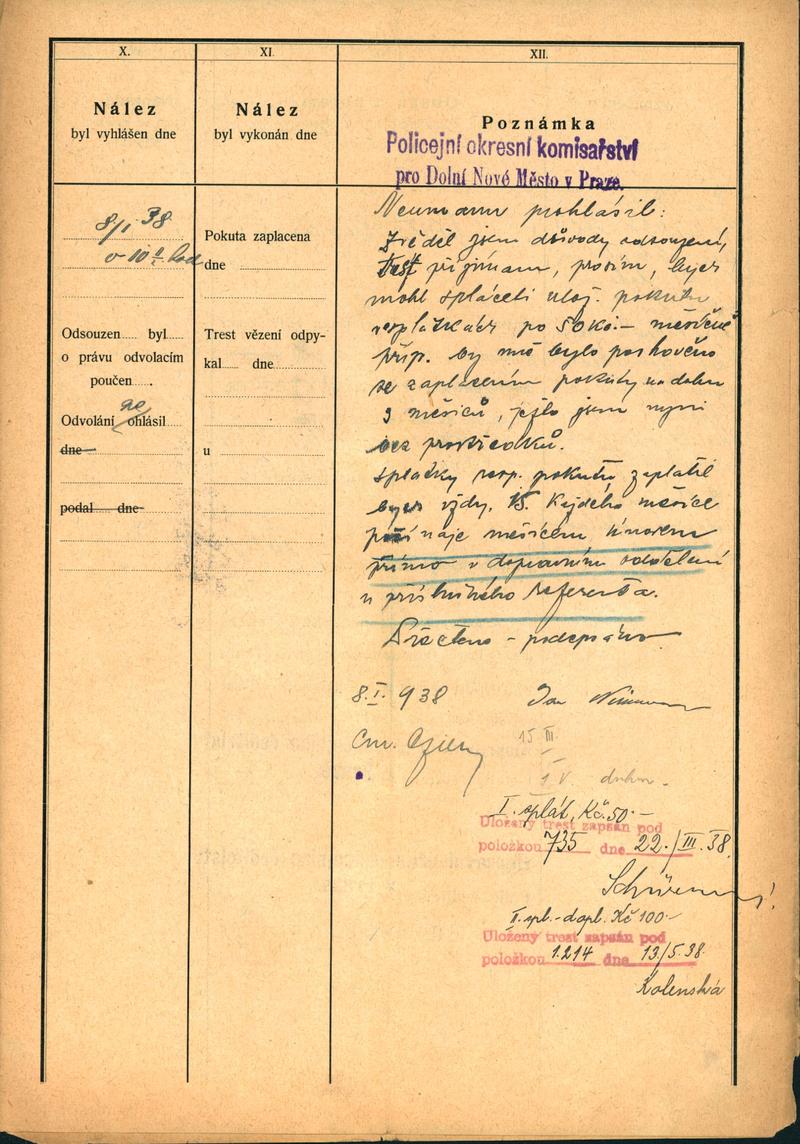 X.
Nález
byl vyhlášen dne
8/I 38
v 10 h hod
Odsouzen..... byl.....
o právu odvolacím
poučen......
Odvolání ne ohlásil....
dne
podal dne
XI.
Nález
byl vykonán dne
Pokuta zaplacena
dne
Trest vězení odpy-
kal.... dne
u
XII.
Poznámka
Policejní okresní komisařství
pro Dolní Nové Město v Praze.
Neumann prohlásil:
Zvěděl jsem důvody odsouzení,
trest přijímám, prosím, abych
mohl spláceti ulož. pokutu
ve splátkách po 50 Kč.- měsíčně
příp. by mně bylo poshověno
se zaplacením pokuty na dobu
3 měsíců, ježto jsem nyní
bez prostředků.
Splátky resp. pokutu zaplatil
bych vždy 15. každého měsíce
počínaje měsícem únorem
přímo v dopravním oddělení
u příslušného referenta.
Přečteno - podepsáno
8.I.938
Jan Neumann
15 III
1 V
I. splát, Kč 50.-
Uložený trest zapsán pod
položkou 735 dne 22./III.38.
II. spl.- dopl. Kč 100.-
Uložený trest zapsán pod
položkou 1.214 dne 13/5.38.
Kolenská